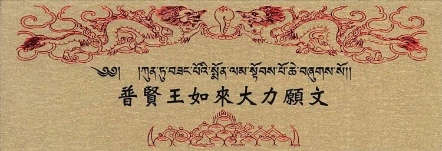 ༄༅། །ཀུན་ཏུ་བཟང་པོའི་སྨོན་ལམ་སྟོབས་པོ་ཆེ་བཞུགས་སོ། །
普賢王如來大力願文